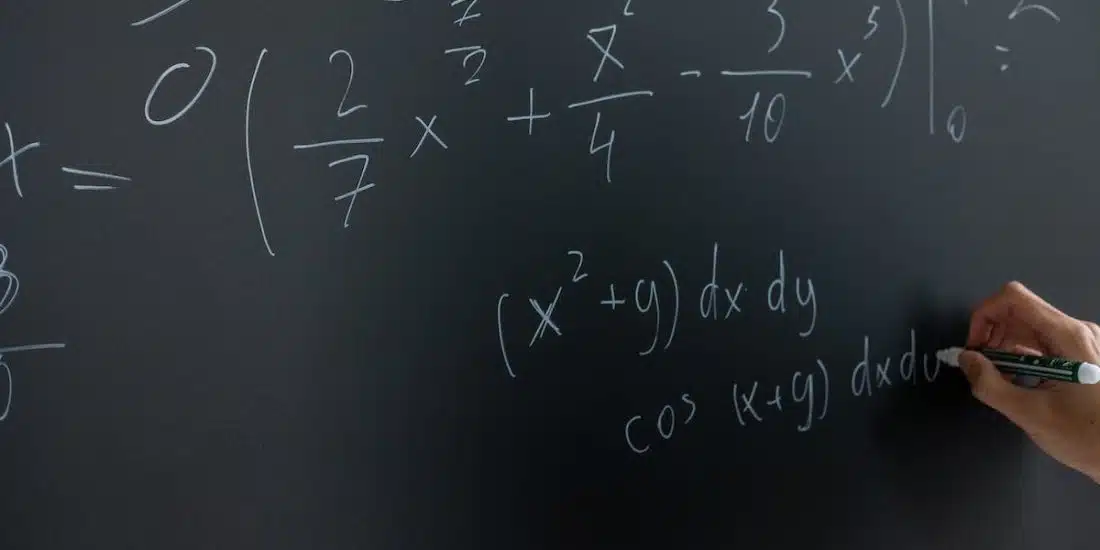 0 ( 2/7 x^7/2 + x^2/4 - 3/10 x^5 ) |_0 =
x =
(x^2 + y) dx dy
cos (x+y) dx dy